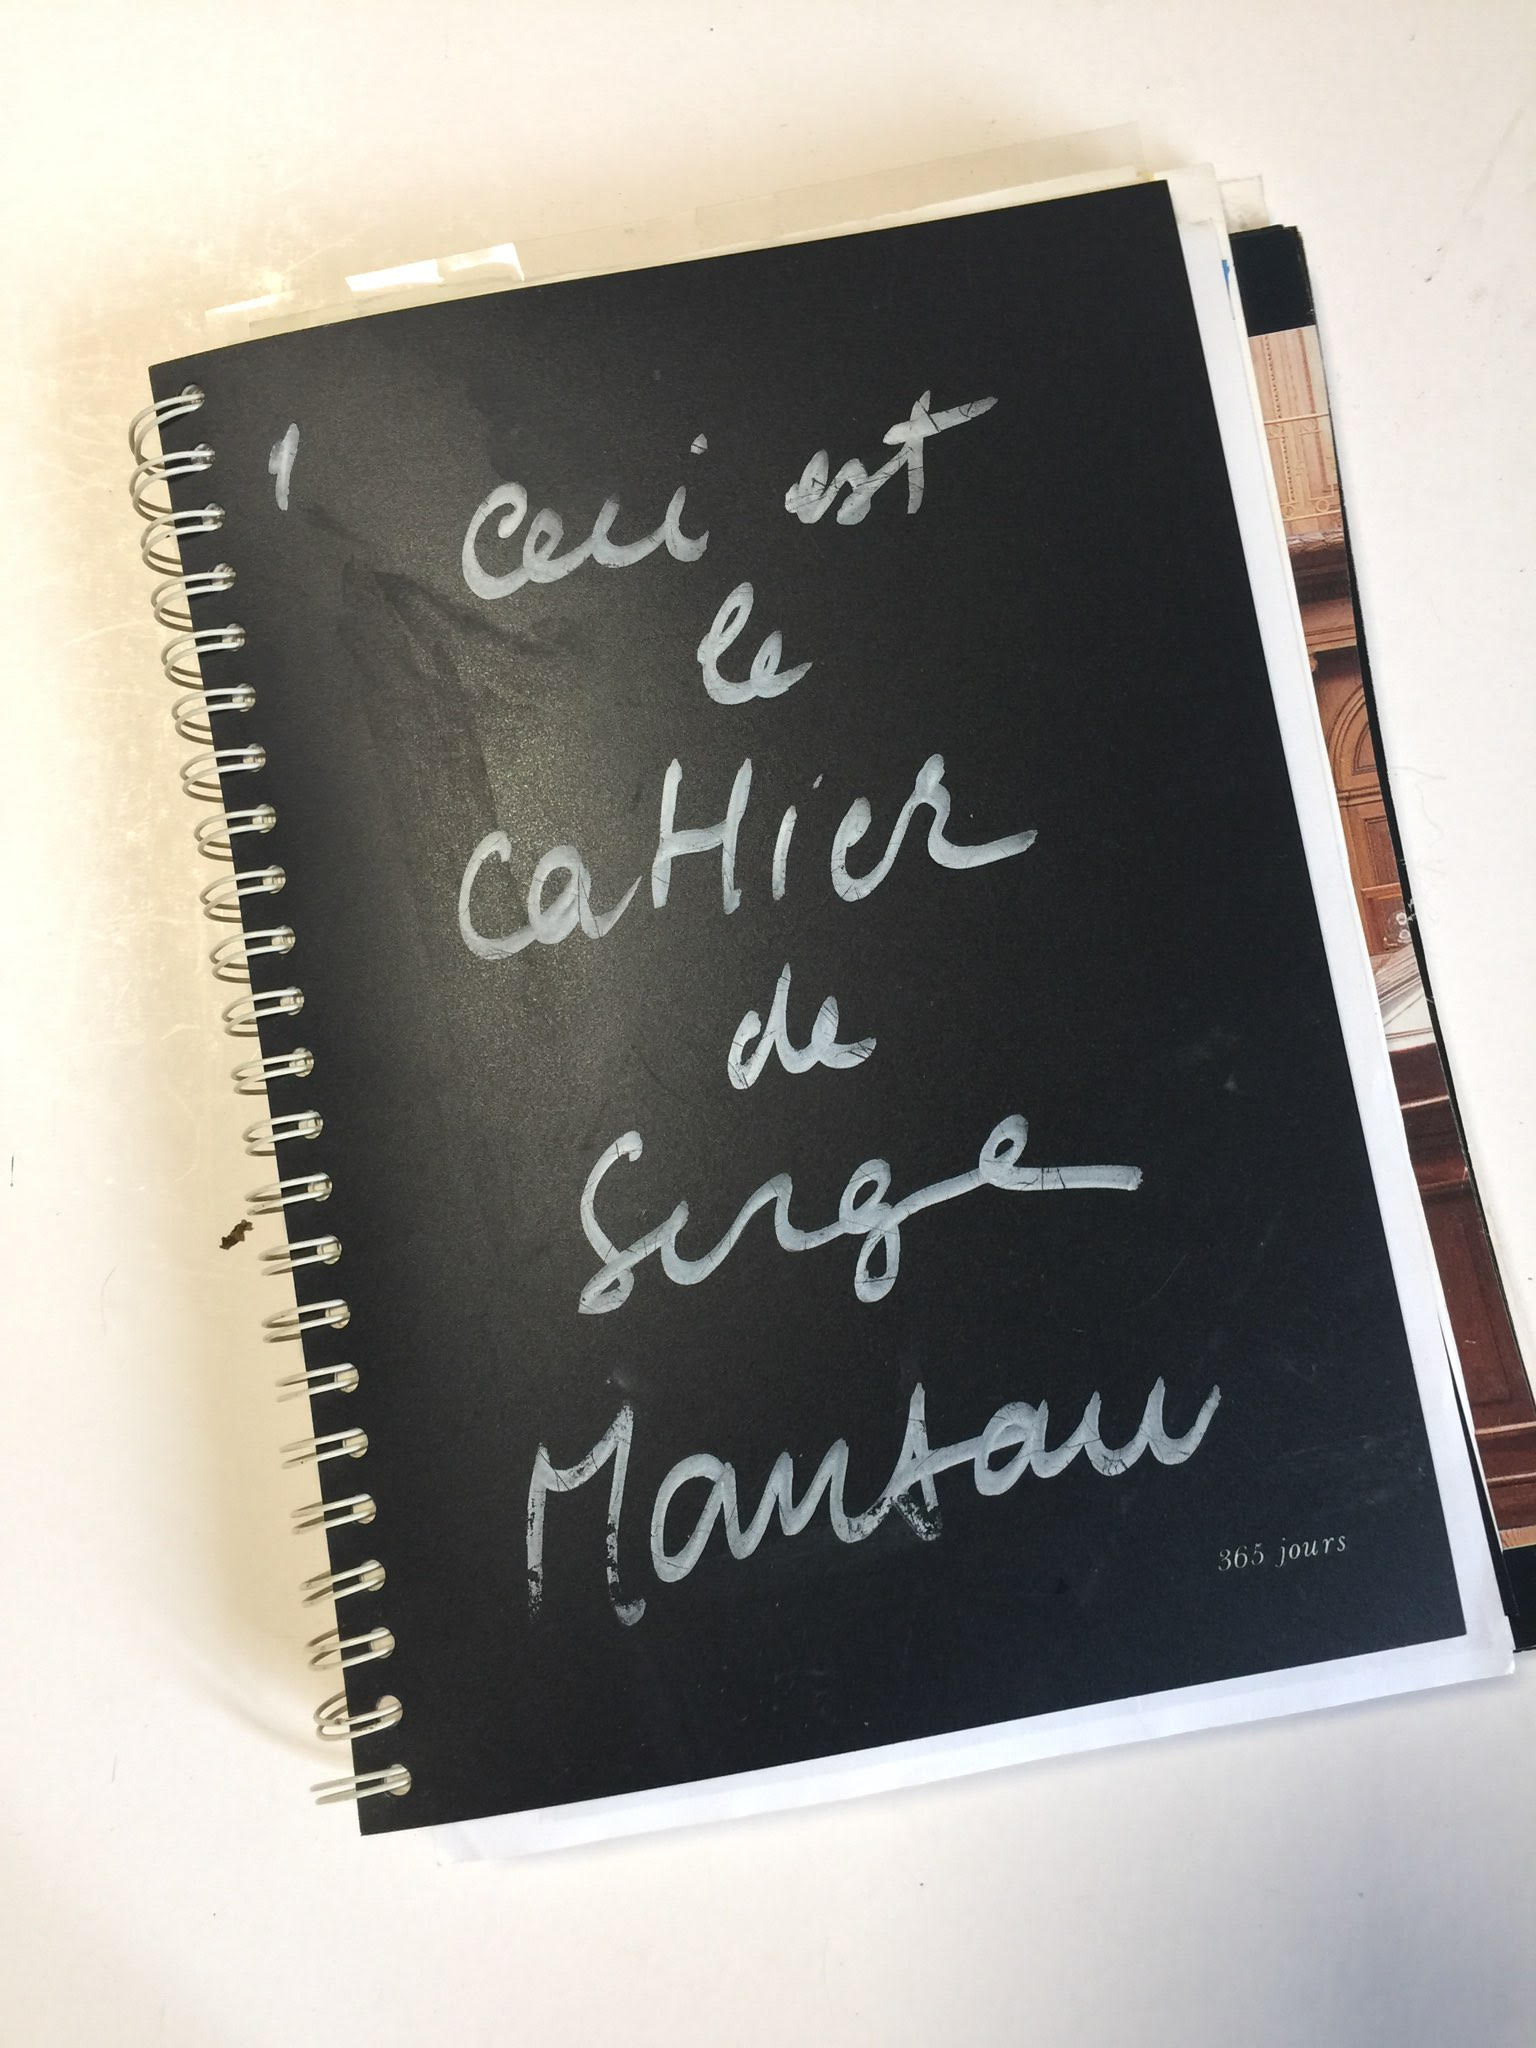 1
Ceci est
le
caHier
de
Serge
Mantau
365 jours